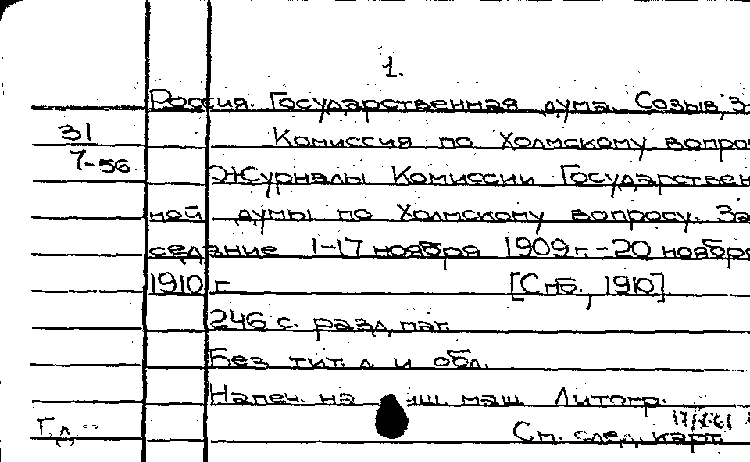 1.
Россия. Государственная дума. Созыв, 3
31
7-56
Комиссия по Холмскому вопро
Журналы Комиссии Государствен
ной думы по Холмскому вопросу. За
седание 1-17 ноября 1909 г.-20 ноябр
1910 г. [Спб., 1910]
246 с. разд. паг.
Без тит. л. и обл.
Напеч. на маш. Литогр.
Г.д.
См. след. карт.